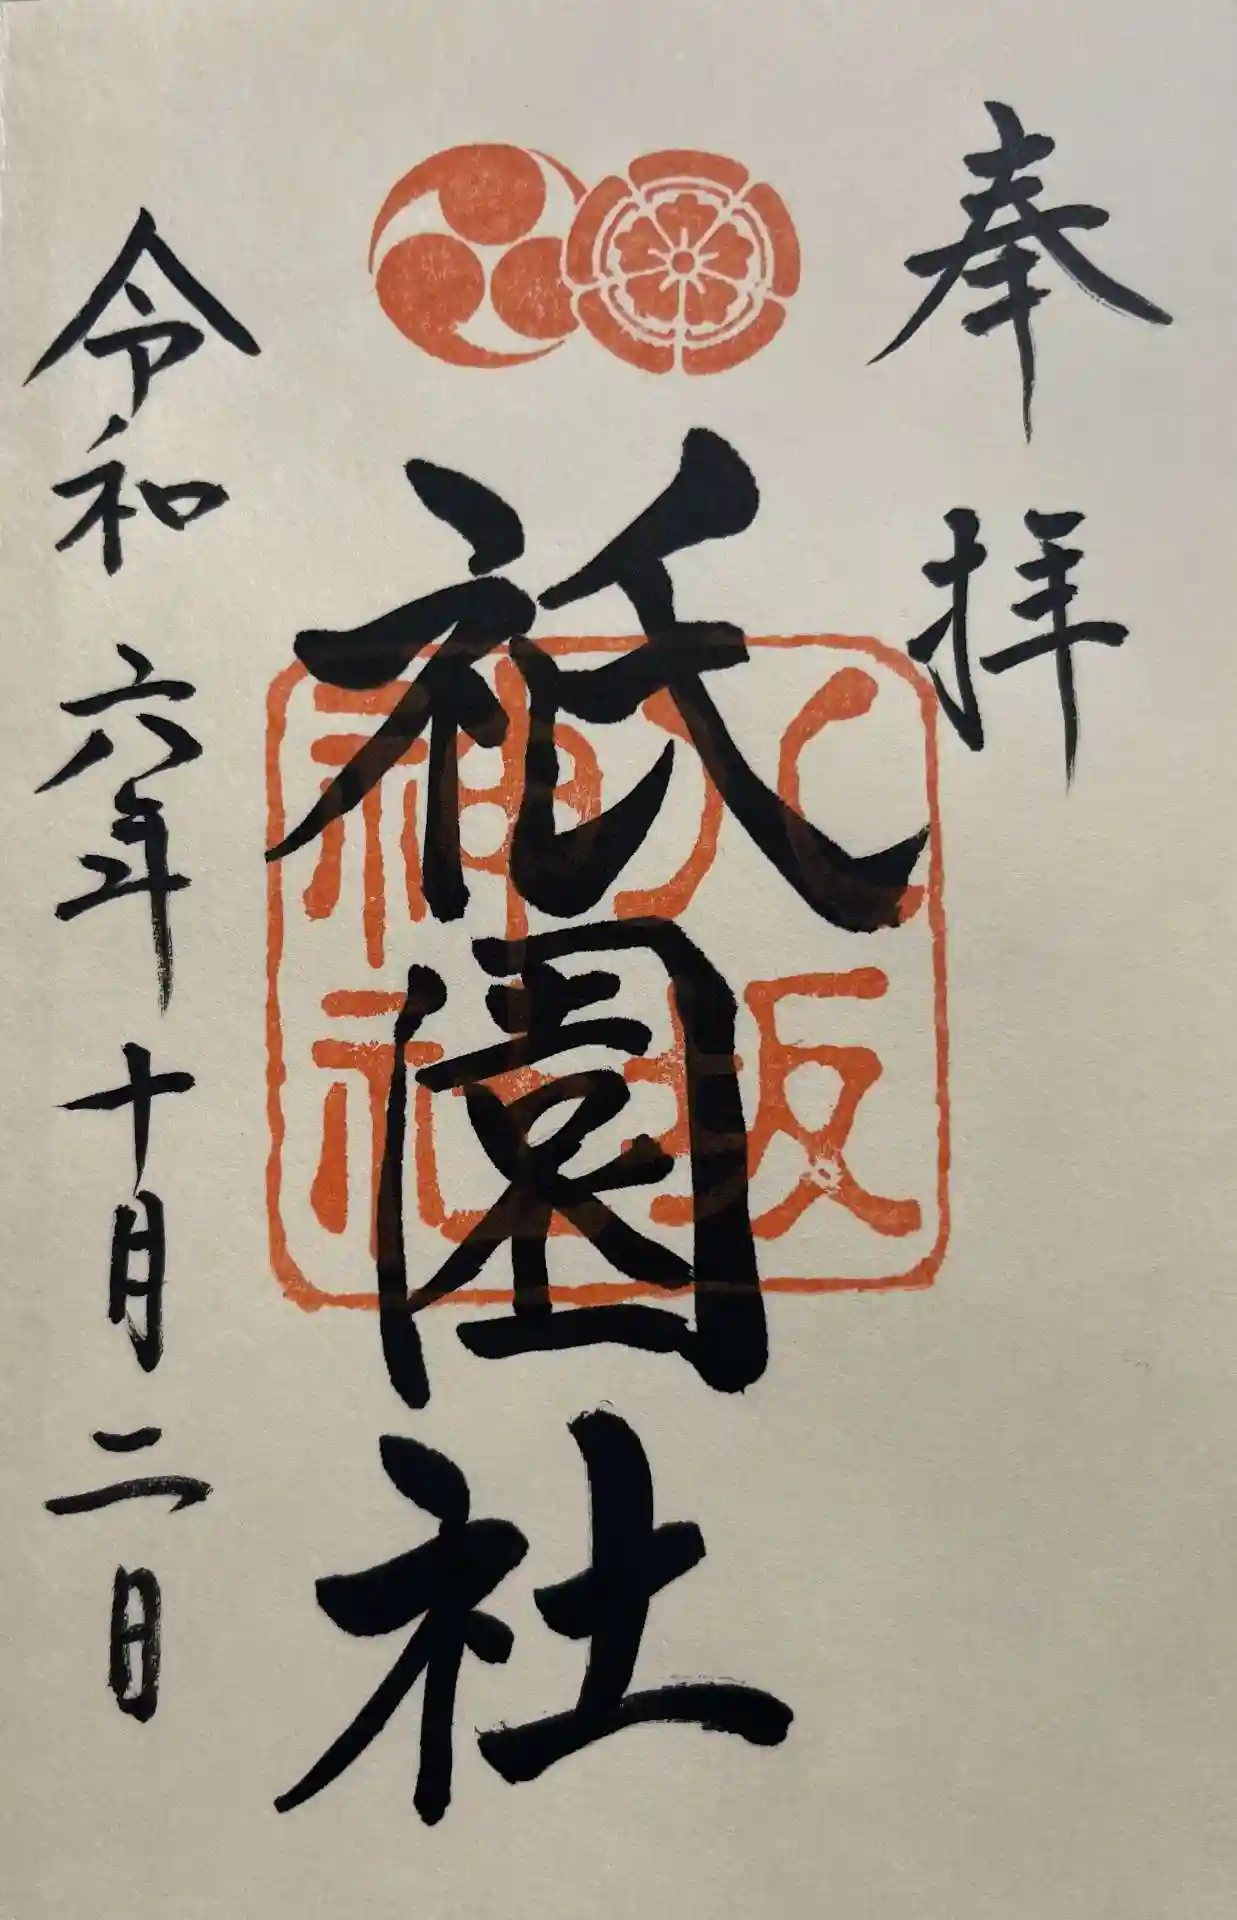 奉拝
祇園社
八坂
神社
令和六年十月二日